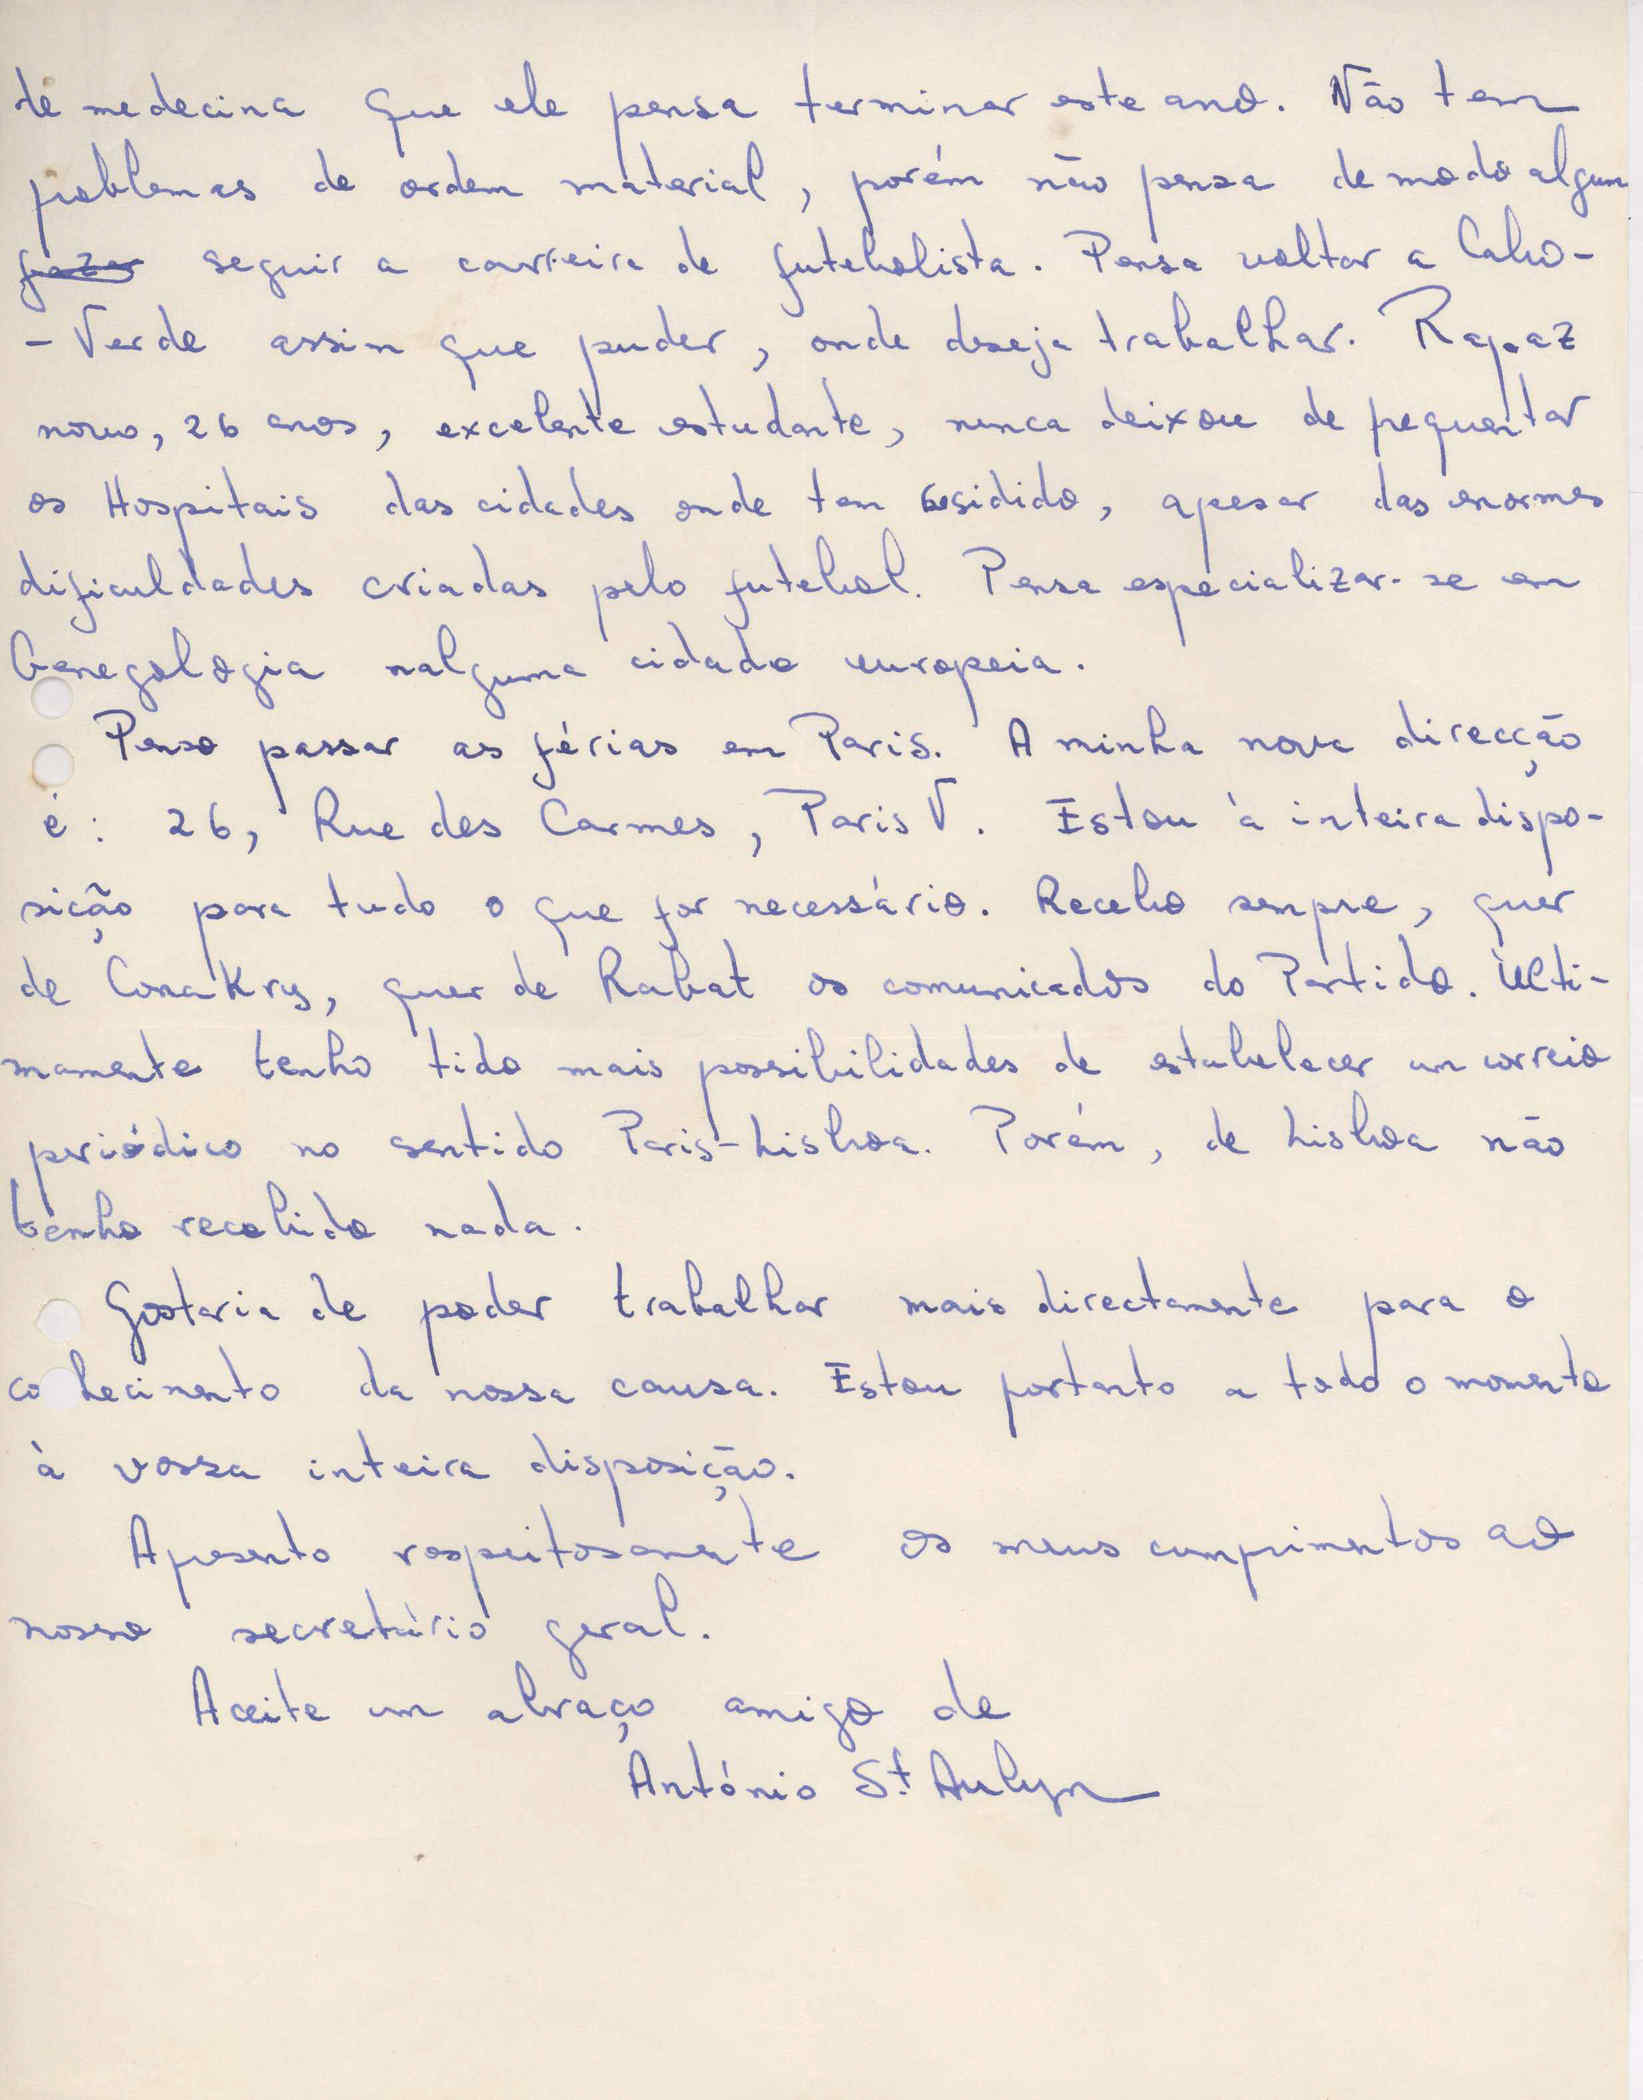 de medecina que ele pensa terminar este ano. Não tem
problemas de ordem material, porém não pensa de modo algum
seguir a carreira de futebolista. Pensa voltar a Cabo-
-Verde assim que puder, onde deseja trabalhar. Rapaz
novo, 26 anos, excelente estudante, nunca deixou de frequentar
os Hospitais das cidades onde tem residido, apesar das enormes
dificuldades criadas pelo futebol. Pensa especializar-se em
Genegologia nalguma cidade europeia.
Penso passar as férias em Paris. A minha nova direcção
é: 26, Rue des Carmes, Paris V. Estou à inteira dispo-
sição para tudo o que for necessário. Recebo sempre, quer
de Conakry, quer de Rabat os comunicados do Partido. Ùlti-
mamente tenho tido mais possibilidades de estabelecer um correio
periódico no sentido Paris-Lisboa. Porém, de Lisboa não
tenho recebido nada.
Gostaria de poder trabalhar mais directamente para o
co hecimento da nossa causa. Estou portanto a todo o momento
à vossa inteira disposição.
Apresento respeitosamente os meus cumprimentos ao
nosso secretário geral.
Aceite um abraço amigo de
António St. Aubyn